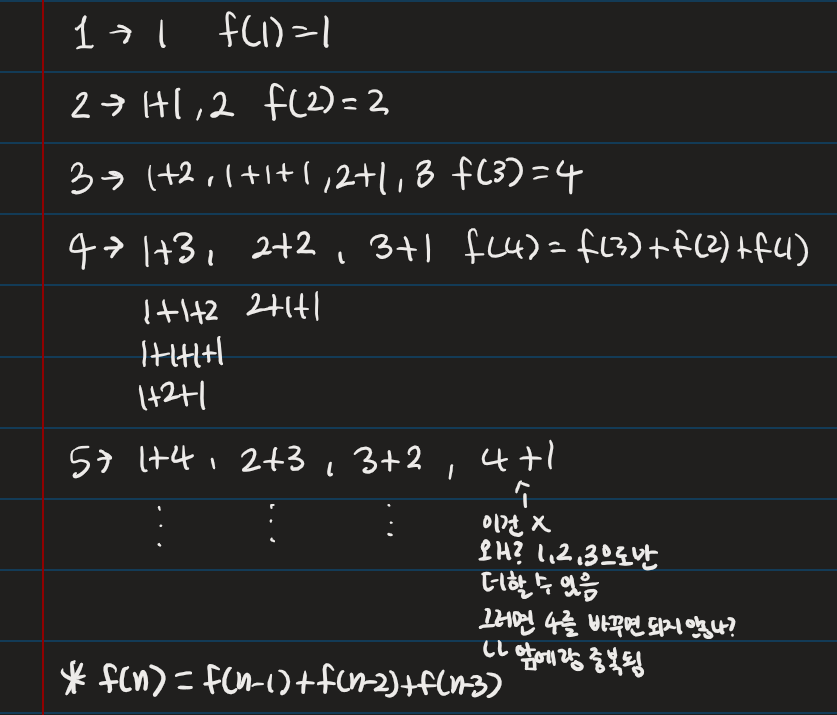 1 → 1 f(1)=1
2 → 1+1, 2 f(2)=2
3 → 1+2, 1+1+1, 2+1, 3 f(3)=4
4 → 1+3, 2+2, 3+1 f(4)=f(3)+f(2)+f(1)
1+1+2 2+1+1
1+1+1+1
1+2+1
5 → 1+4, 2+3, 3+2, 4+1
⋮ ⋮ ⋮ ↑
이건 x
왜? 1,2,3으로만
더할 수 있음
그러면 4를 바꾸면 되지 않나?
ㄴㄴ 앞에랑 중복됨
* f(n)=f(n-1)+f(n-2)+f(n-3)